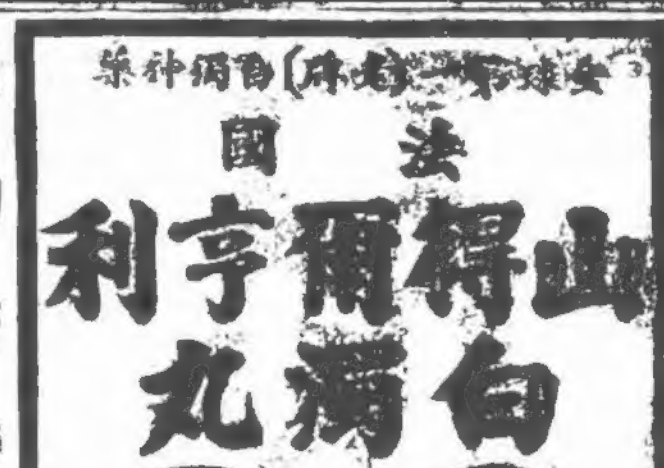 全球第一(老牌)白濁神藥
法國
山得爾亨利
白濁丸